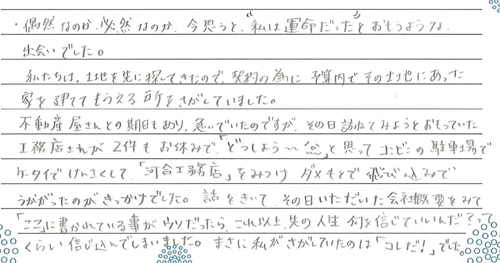 ・偶然なのか、必然なのか、今思うと、"私は運命だった"とおもうような、
出会いでした。
私たちは、土地を先に探してきたので、契約の為に予算内でその土地にあった
家を建ててもらえる所をさがしていました。
不動産屋さんとの期日もあり、急いでいたのですが、その日訪ねてみようとおもっていた
工務店さんが2件もお休みで、「どうしよう〜」と思ってコンビニの駐車場で
ケータイでけんさくして、「河合工務店」をみつけ ダメもとで飛び込みで
うかがったのがきっかけでした。話をきいて、その日いただいた会社概要をみて
「ここに書かれている事がウソだったら、これ以上、先の人生 何を信じていいんだ?」って
くらい信じ込んでしまいました。まさに私がさがしていたのは「コレだ!」でした。